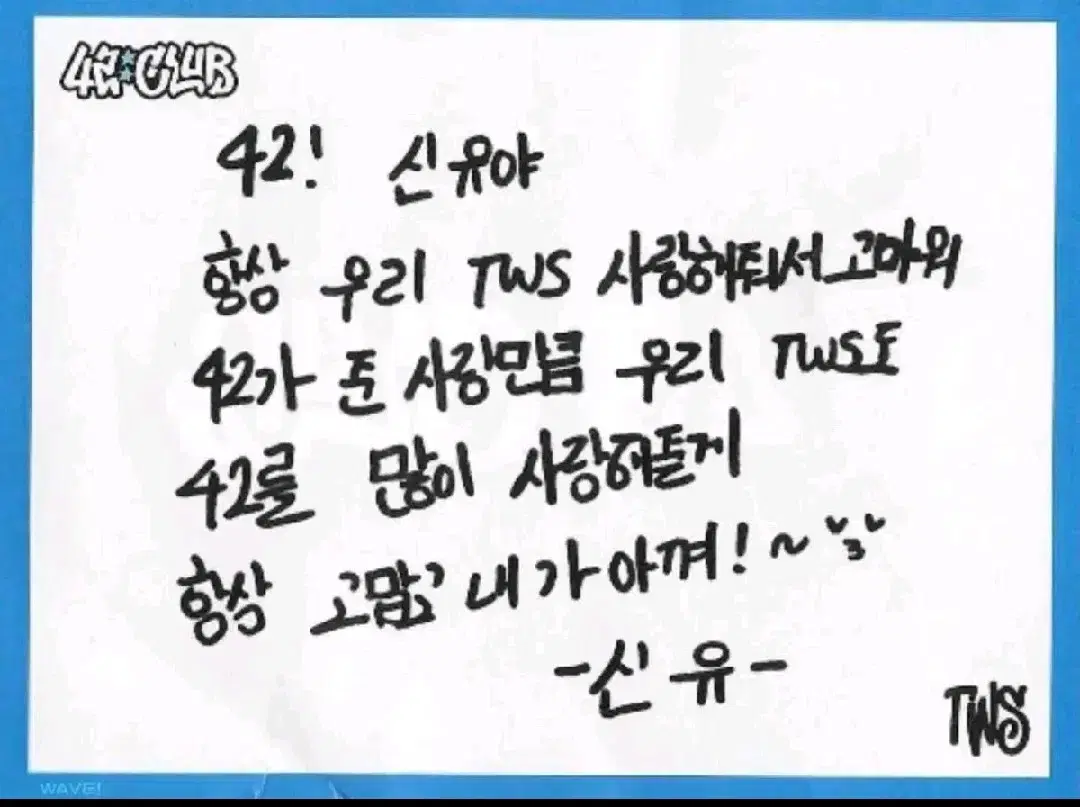 42:CLUB
42! 신유야
항상 우리 TWS 사랑해줘서 고마워
42가 준 사랑만큼 우리 TWS도
42를 많이 사랑해줄게
항상 고맙고 내가 아껴!~ ˘3˘
-신유-
TWS
WAVE!